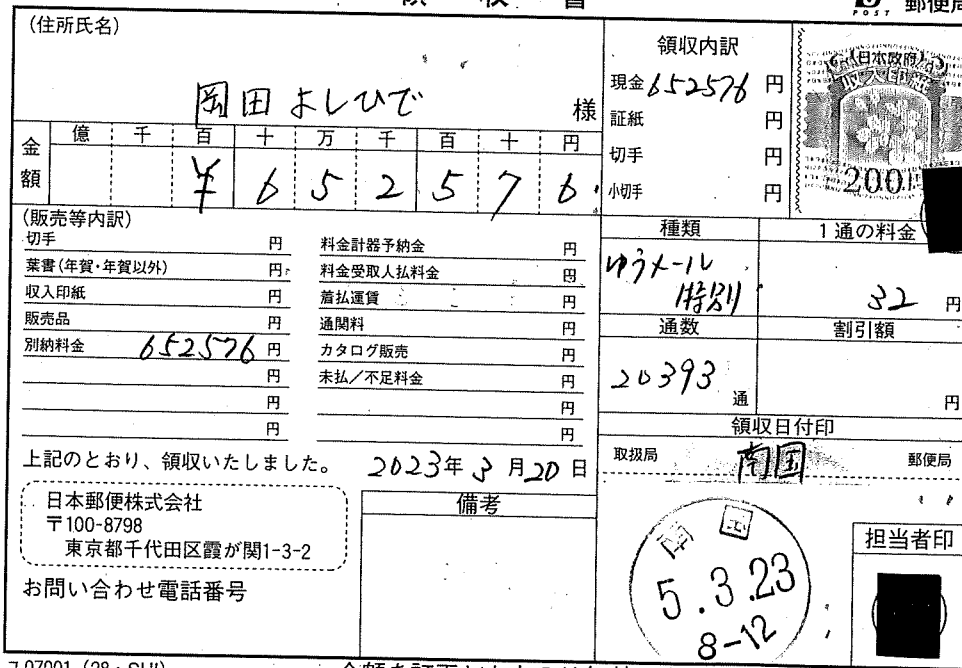 郵便局
POST
(住所氏名)
岡田よしひで 様
金額
億 千 百 十 万 千 百 十 円
¥ 6 5 2 5 7 6
領収内訳
現金 652576 円
証紙 円
切手 円
小切手 円
日本政府
収入印紙
200
(販売等内訳)
切手 円
葉書(年賀・年賀以外) 円
収入印紙 円
販売品 円
別納料金 652576 円
円
円
円
料金計器予納金 円
料金受取人払料金 円
着払運賃 円
通関料 円
カタログ販売 円
未払/不足料金 円
円
円
種類
ゆうメール
特別
1通の料金
32 円
通数
20393 通
割引額
円
上記のとおり、領収いたしました。 2023年3月20日
日本郵便株式会社
〒100-8798
東京都千代田区霞が関1-3-2
お問い合わせ電話番号
備考
領収日付印
取扱局 南国 郵便局
南国
5.3.23
8-12
担当者印